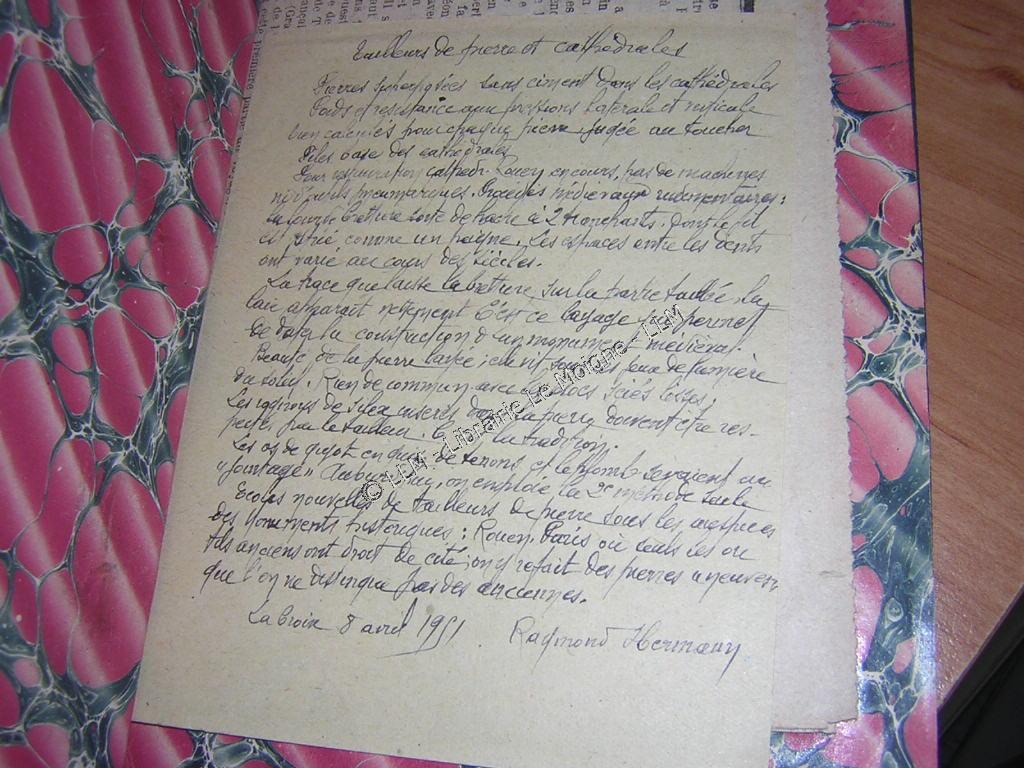 Tailleurs de pierre et cathédrales
Pierres superposées sans ciment dans les cathédrales
Poids et résistance aux pressions latérale et verticale
bien calculés pour chaque pierre jugée au toucher
Piles base des cathédrales
Pour restauration cathédr. Rouen en cours, pas de machines
ni d'outils pneumatiques. Procédés médiévaux rudimentaires :
la bretture sorte de hache à 2 tranchants. dont le fil
est strié comme un peigne. Les espaces entre les dents
ont varié au cours des siècles.
La trace que laisse la bretture, sur la partie taillée, la
laie apparaît nettement C'est ce layage qui permet
de dater la construction d'un monument médiéval.
Beauté de la pierre layée ; elle vit sous les jeux de lumière
du soleil. Rien de commun avec blocs sciés lisses ;
Les rognons de silex insérés dans la pierre doivent être res-
pectés par le tailleur la tradition.
Les os de gigot en guise de tenons et le plomb servaient au
"jointage" Aujourd'hui, on emploie la 2e méthode seule
Ecoles nouvelles de tailleurs de pierre sous les auspices
des Monuments historiques : Rouen Paris où seuls les ou
tils anciens ont droit de cité ; on y refait des pierres neuves
que l'on ne distingue pas des anciennes.
La Croix 8 avril 1951 Raymond Hermany
© LLM - Librairie Le Moigne - LLM